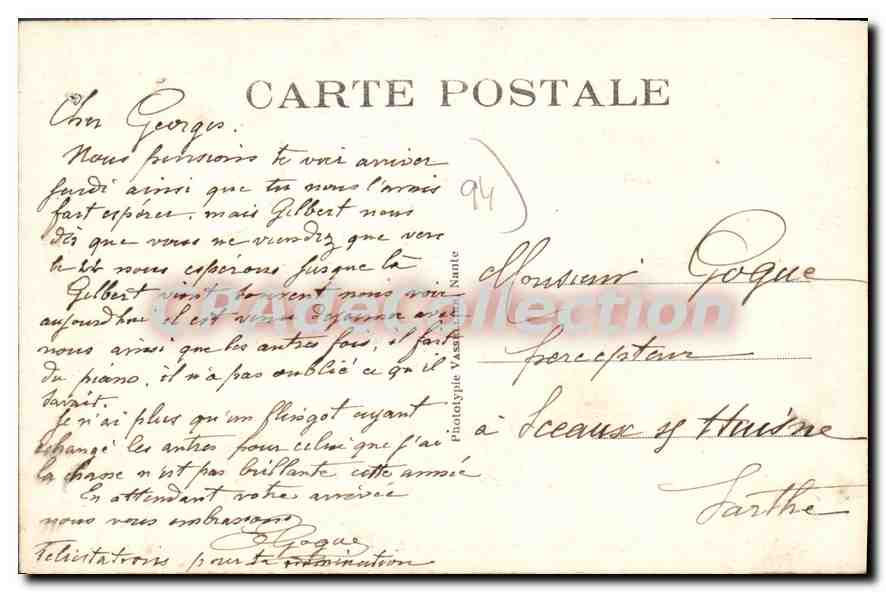 CARTE POSTALE
Cher Georges.
Nous pensions te voir arriver
jeudi ainsi que tu nous l'avais
fait espérer, mais Gilbert nous
dis que vous ne viendrez que vers
le 22 nous espérons jusque là
Gilbert vient souvent nous voir
aujourd'hui il est venu déjeuner avec
nous ainsi que les autres fois, il fait
du piano, il n'a pas oublié ce qu'il
savait.
Je n'ai plus qu'un flingot ayant
échangé les autres pour celui que j'ai
la chasse n'est pas brillante cette année
En attendant votre arrivée
nous vous embrassons
EGogue
Félicitations pour ta nomination
94
Phototypie Nante
Monsieur Gogue
percepteur
à Sceaux s/ Huisne
Sarthe
CPA Collection